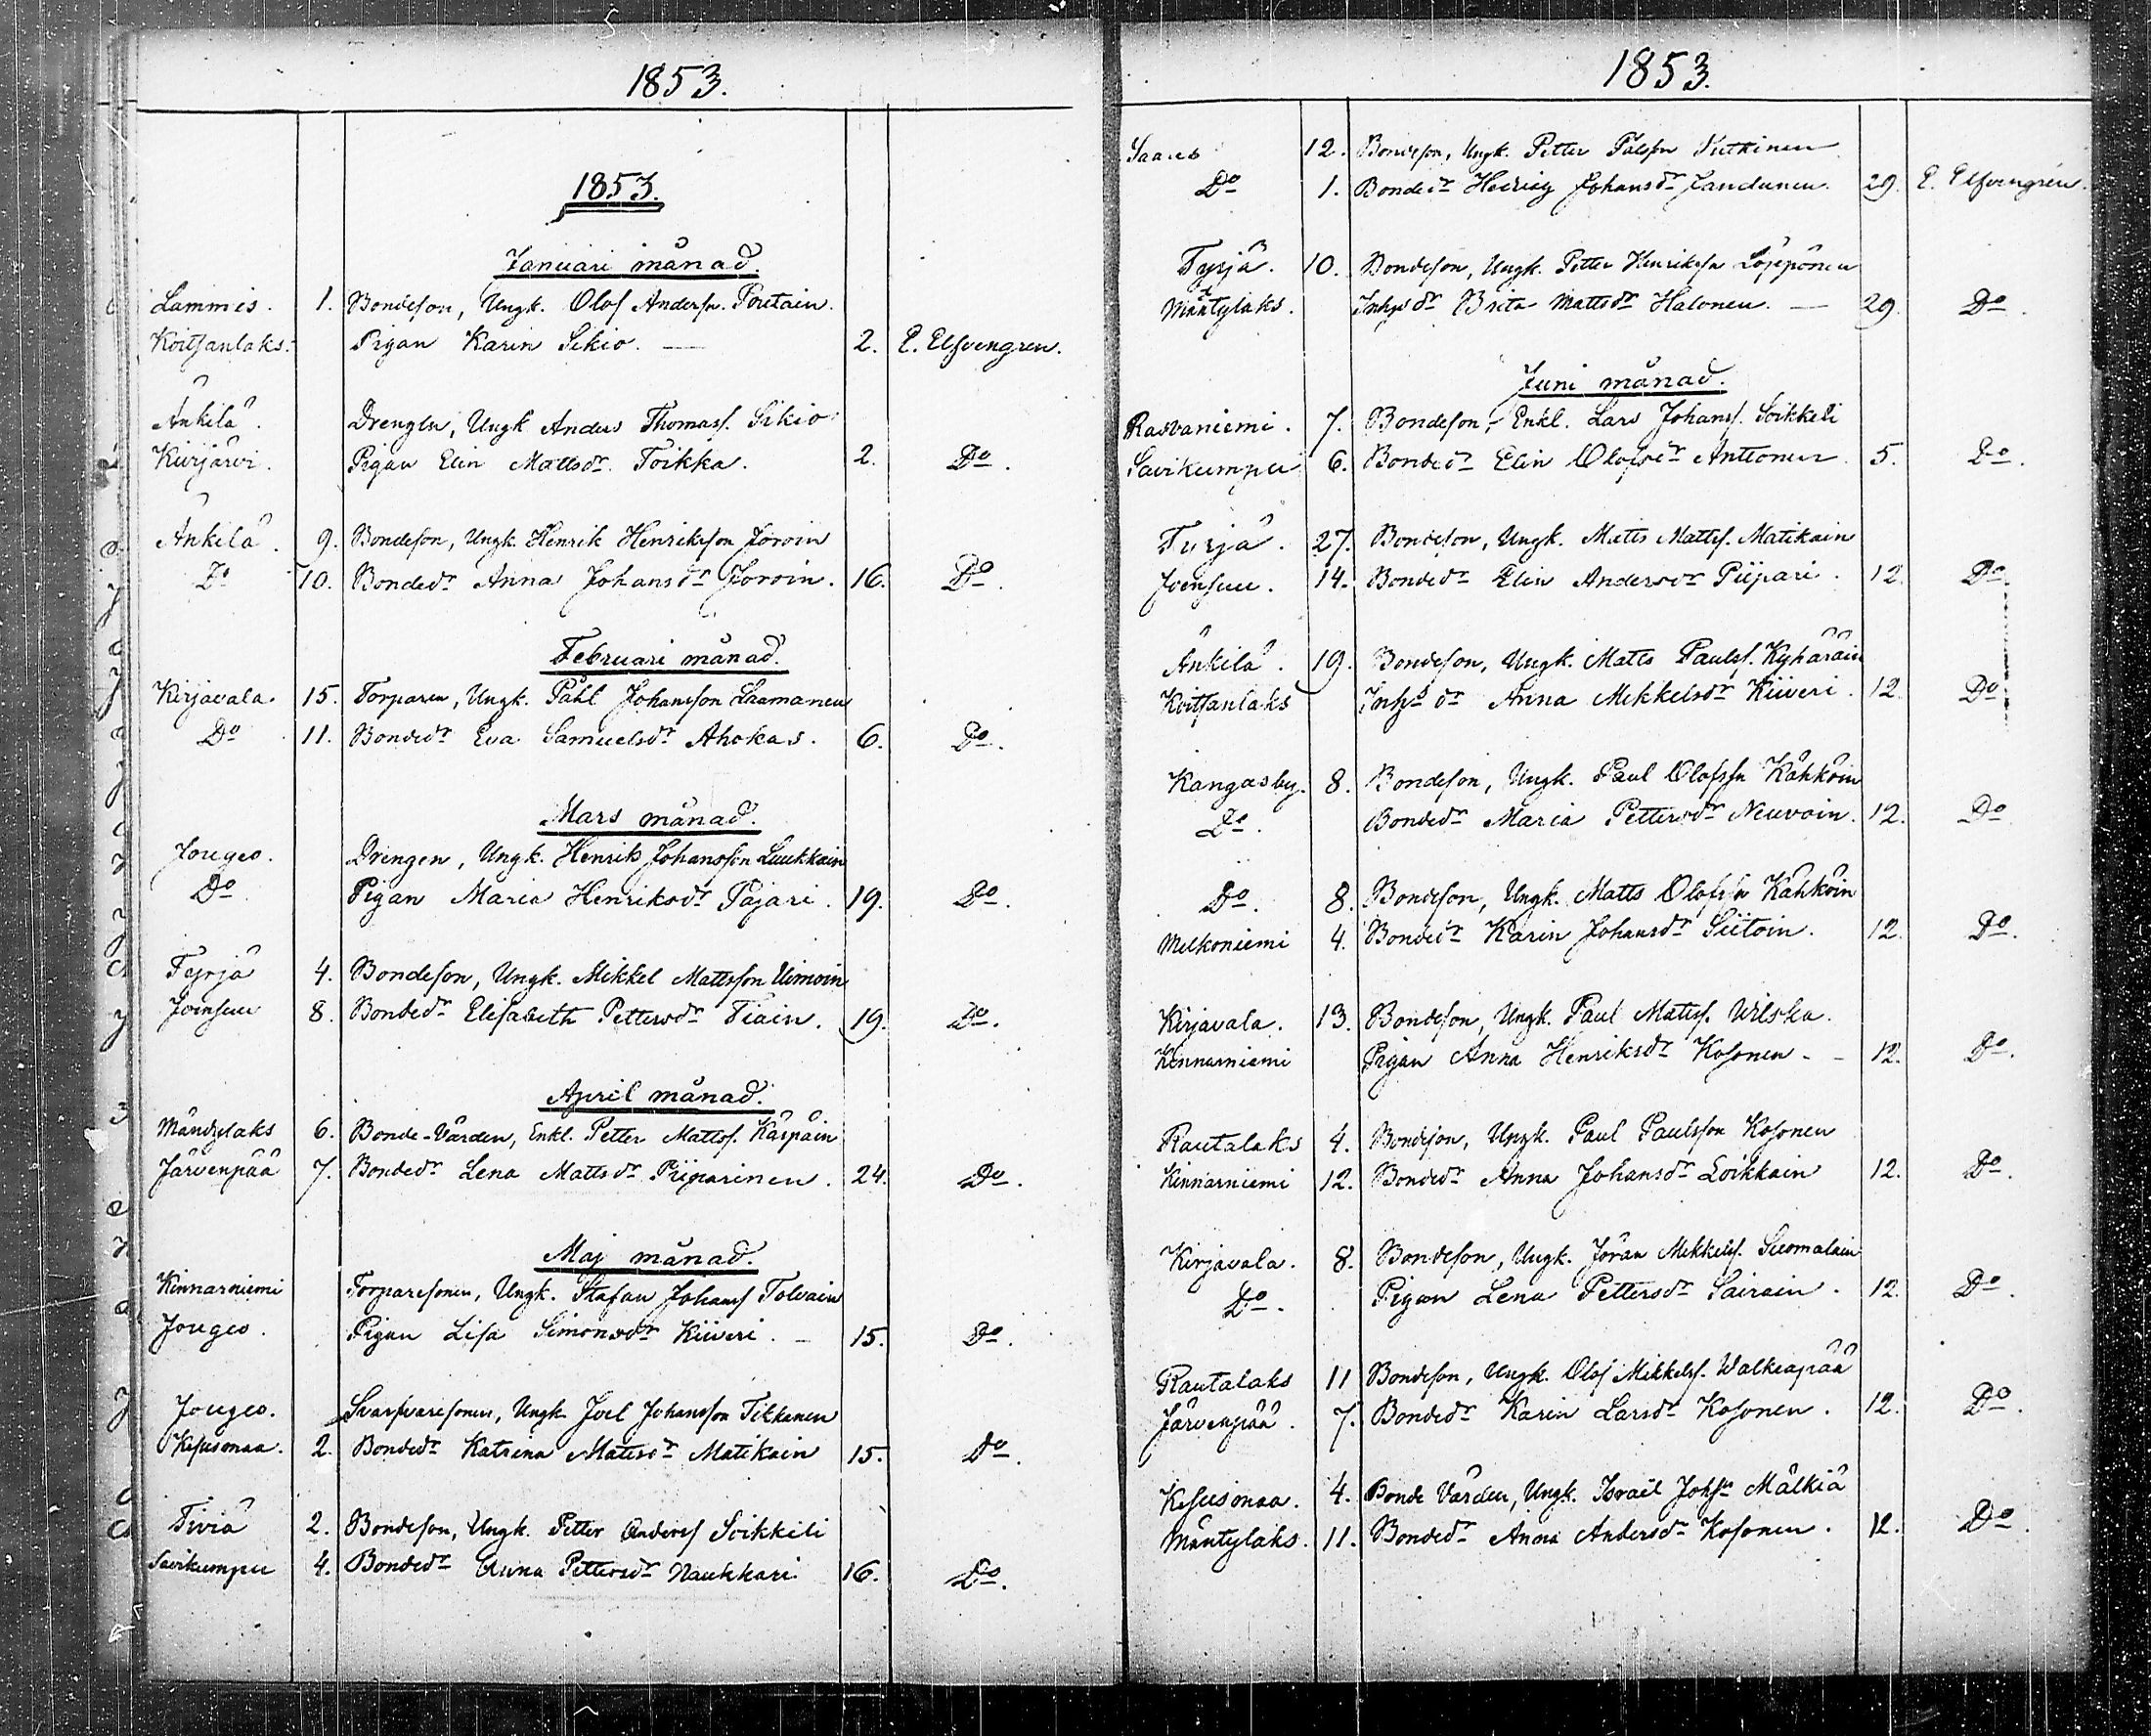 1853.
1853.
Januari månad.
Lammis. 1. Bondeson, Ungk. Olof Anderss. Poutain.
Koitsanlaks. Pigan Karin Sikio. — 2. E. Elfvengren.
Änkilä. Drengen, Ungk Anders Thomass. Sikio
Kurjärvi. Pigan Elin Mattsdr. Toikka. 2. Do.
Änkilä. 9. Bondeson, Ungk. Henrik Henriksson Joroin
Do 10. Bondedr Anna Johansdr Joroin. 16. Do.
Februari månad.
Kirjavala. 15. Torparen, Ungk. Påhl Johansson Laamanen
Do 11. Bondedr Eva Samuelsdr Ahokas. 6. Do.
Mars månad.
Jougeo. Drengen, Ungk. Henrik Johansson Luukkain
Do Pigan Maria Henriksdr Pajari. 19. Do.
Tyrjä 4. Bondeson, Ungk. Mikkel Mattsson Uimoin
Joensuu 8. Bondedr Elisabeth Pettersdr Tiain. 19. Do.
April månad.
Mändylaks 6. Bonde-Vården, Enkl. Petter Mattss. Karpain
Järvenpää 7. Bondedr Lena Mattsdr Piiparinen. 24. Do.
Maj månad.
Kinnarniemi Torparesonen, Ungk. Stafan Johanss Tolvain
Jougeo. Pigan Lisa Simonsdr Kiiveri. — 15. Do.
Jougeo. Svarfvaresonen, Ungk. Joel Johansson Tikkanen
Kesusmaa. 2. Bondedr Katrina Matsdr Matikain 15. Do.
Tiviä 2. Bondeson, Ungk. Petter Anderss Soikkeli
Savikumpu 4. Bondedr Anna Pettersdr Naukkari 16. Do.
1853.
Saares 12. Bondeson, Ungk. Petter Pålsson Kutkinen
Do 1. Bondedr Hedvig Johansdr Jandunen. 29. E. Elfvengren.
Tyrjä. 10. Bondeson, Ungk. Petter Henriksson Löppönen
Mäntylaks. Inhysdr Brita Mattsdr Halonen. — 29. Do.
Juni månad.
Rasvaniemi. 7. Bondeson, Enkl. Lars Johanss. Soikkeli
Savikumpu 6. Bondedr Elin Olofsdr Anttonen 5. Do.
Tyrjä. 27. Bondeson, Ungk. Matts Mattss. Matikain
Joensuu. 14. Bondedr Elin Andersdr Piipari. 12. Do.
Änkilä. 19. Bondeson, Ungk. Matts Paulss. Kyhäräin
Koitsanlaks Inhs dr Anna Mikkelsdr Kiiveri. 12. Do
Kangasby. 8. Bondeson, Ungk. Paul Olofsson Kähköin
Do. Bondedr Maria Pettersdr Neuvoin. 12. Do
Do. 8. Bondeson, Ungk. Matts Olofsson Kähköin
Melkoniemi 4. Bondedr Karin Johansdr Siitoin. 12. Do.
Kirjavala. 13. Bondeson, Ungk. Paul Matss. Wilska.
Kinnarniemi Pigan Anna Henriksdr Kosonen - - 12. Do.
Rautalaks 4. Bondeson, Ungk. Paul Paulsson Kosonen
Kinnarniemi 12. Bondedr Anna Johansdr Loikkain 12. Do.
Kirjavala. 8. Bondeson, Ungk. Jöran Mikkelss. Suomalain
Do. Pigan Lena Pettersdr Sairain. 12. Do.
Rautalaks 11 Bondeson, Ungk. Olof Mikkelss. Walkiapää
Järvenpää. 7. Bondedr Karin Larsdr Kosonen. 12. Do.
Kesusmaa. 4. Bonde Vården, Ungk. Israel Johsn Mälkiä
Mäntylaks. 11. Bondedr Anna Andersdr Kosonen. 12. Do.